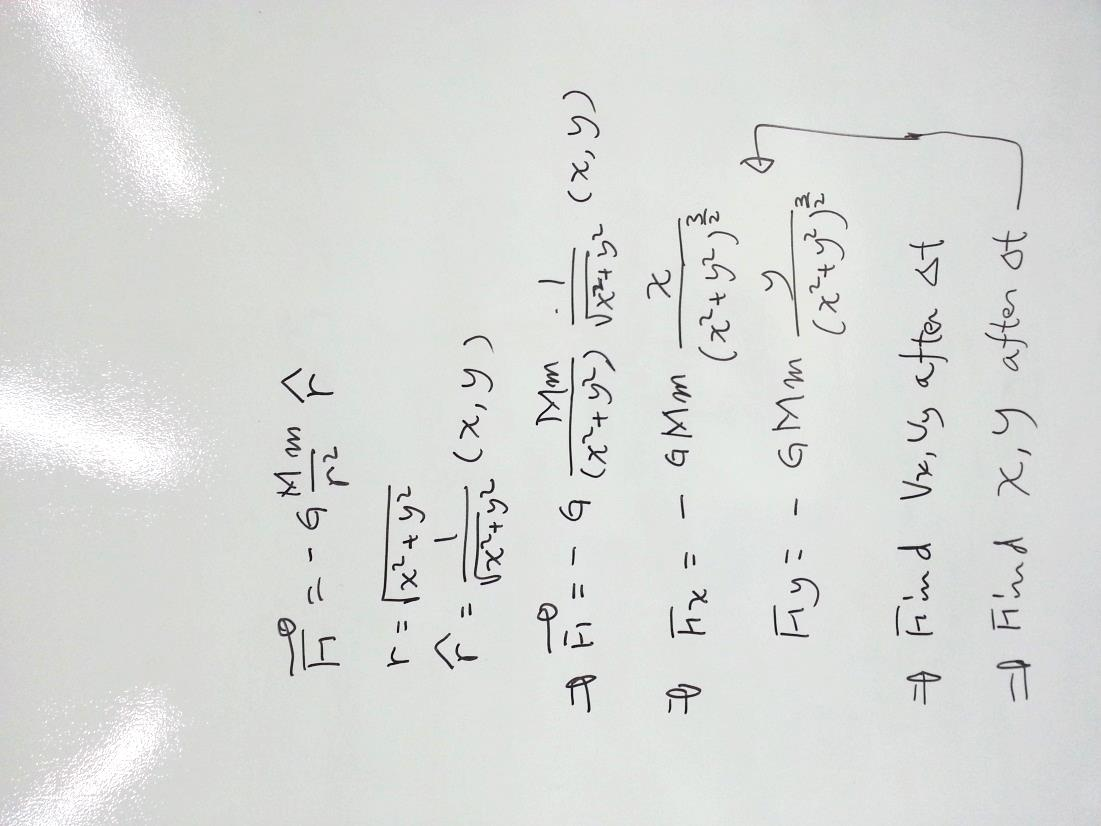 F⃗ = - G Mm/r² r̂
r = √(x²+y²)
r̂ = 1/√(x²+y²) (x, y)
⇒ F⃗ = - G Mm/(x²+y²) · 1/√(x²+y²) (x, y)
⇒ Fx = - G M m x/(x²+y²)^(3/2)
Fy = - G M m y/(x²+y²)^(3/2)
⇒ Find Vx, Vy after Δt
⇒ Find x, y after Δt